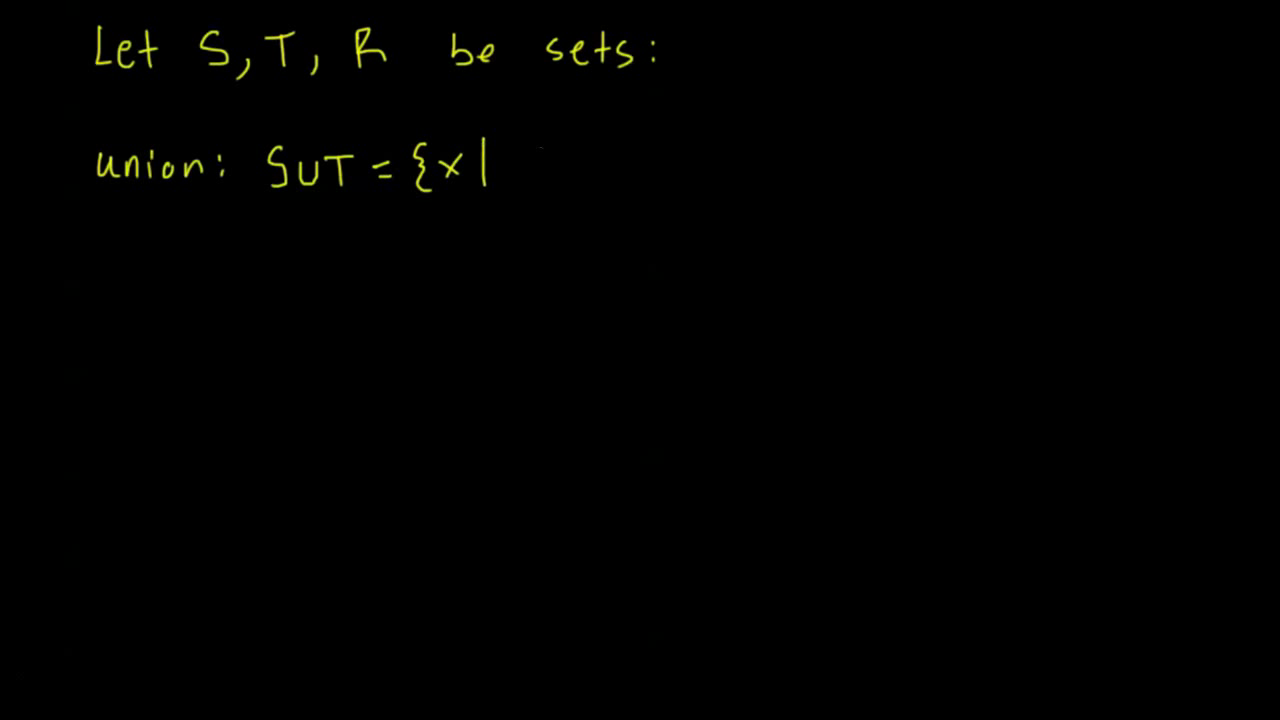 Let S, T, R be sets:
union: S∪T = {x |